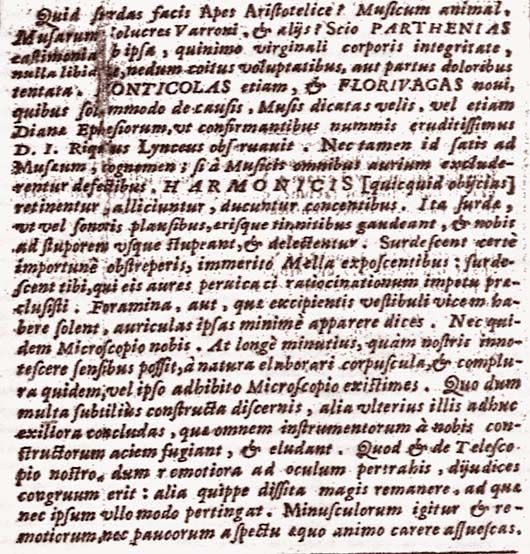 Quid surdas facis Apes Aristotelice? Musicum animal,
Musarum volucres Varroni, & alijs? Scio PARTHENIAS
castimonia ab ipsa, quinimo virginali corporis integritate,
nulla libidine, nedum coitus voluptatibus, aut partus doloribus
tentata. MONTICOLAS etiam, & FLORIVAGAS noui,
quibus solummodo de causis, Musis dicatas velis, vel etiam
Dianæ Ephesiorum, vt confirmantibus nummis eruditissimus
D. I. Riquius Lynceus obseruauit. Nec tamen id satis ad
Musæum, cognomen; si à Musicis omnibus aurium exclude-
rentur defectibus. HARMONICIS [quicquid obijcias]
retinentur, alliciuntur, ducuntur concentibus. Ita surdæ,
vt vel sonoris plausibus, ærisque tinnitibus gaudeant, & nobis
ad stuporem vsque stupeant, & delectentur. Surdescent certè
importunè obstreperis, immeritò Mella exposcentibus: surde-
scent tibi, qui eis aures peruicaci ratiocinationum impetu præ-
clusisti. Foramina, aut, quæ excipientis vestibuli vicem ha-
bere solent, auriculas ipsas minimè apparere dices. Nec qui-
dem Microscopio nobis. At longè minutius, quàm nostris inno-
tescere sensibus possit, à natura elaborari corpuscula, & complu-
ra quidem, vel ipso adhibito Microscopio existimes. Quo dum
multa subtilius constructa discernis, alia vlterius illis adhuc
exiliora concludas, quæ omnem instrumentorum à nobis con-
structorum aciem fugiant, & eludant. Quod & de Telesco-
pio nostro, dum remotiora ad oculum pertrahis, dijudices
congruum erit: alia quippe dissita magis remanere, ad quæ
nec ipsum vllo modo pertingat. Minusculorum igitur & re-
motiorum, nec paucorum aspectu æquo animo carere assuescas.